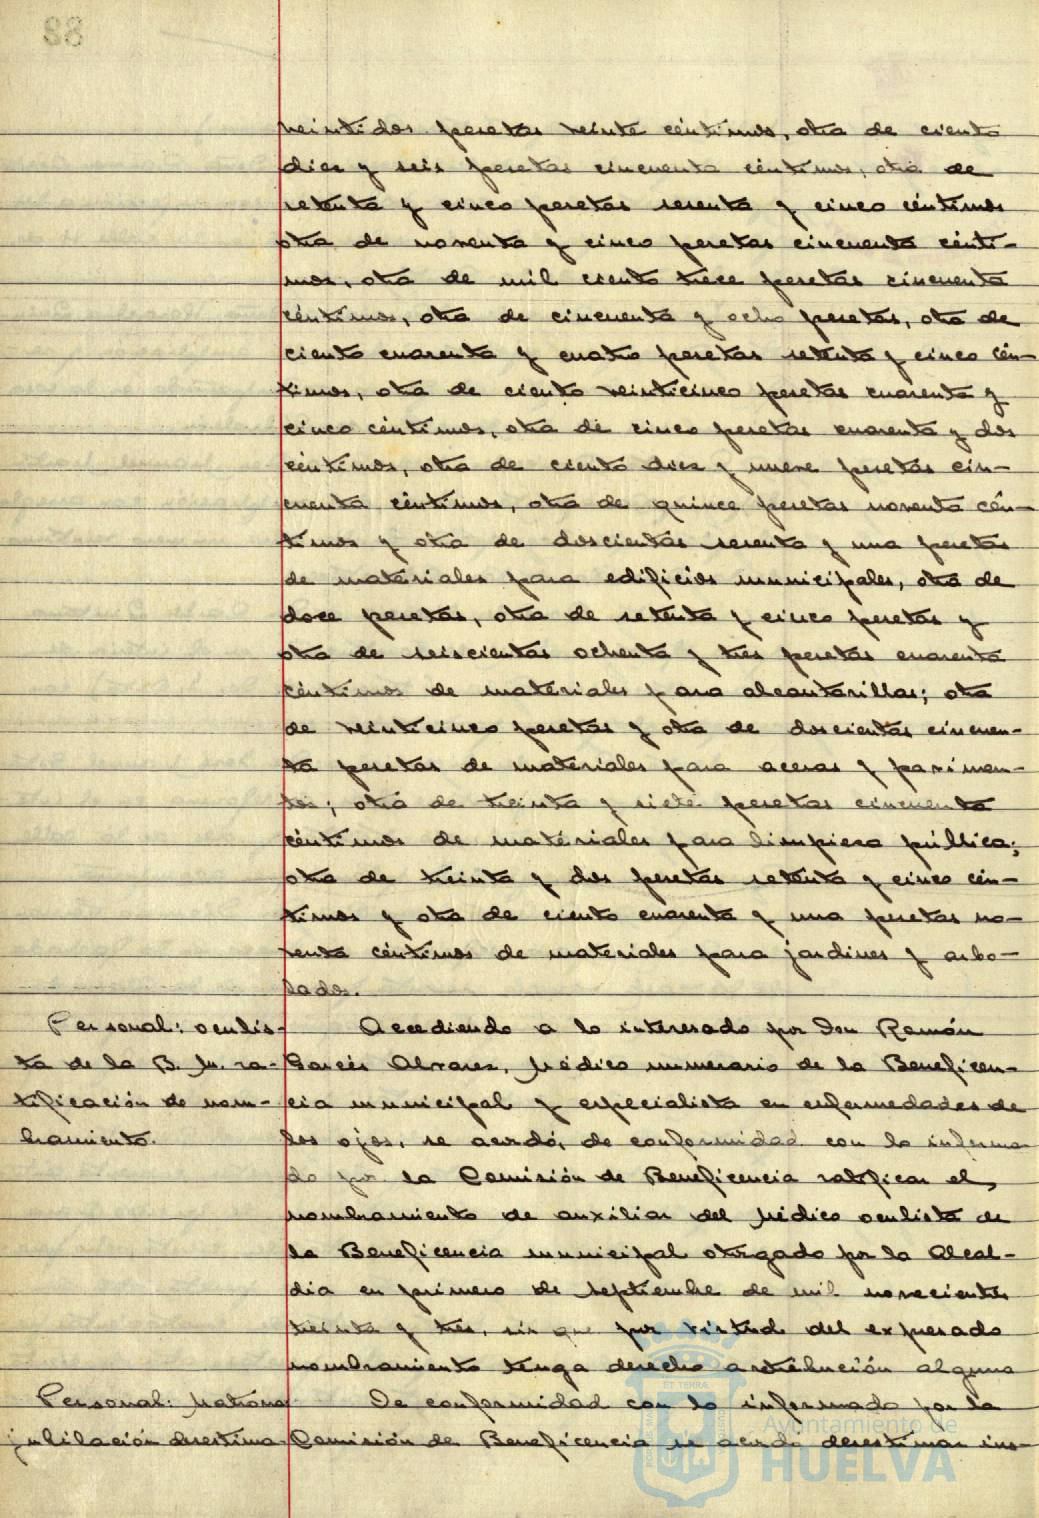 88
veintidos pesetas veinte céntimos, otra de ciento
diez y seis pesetas cincuenta céntimos, otra de
setenta y cinco pesetas sesenta y cinco céntimos
otra de noventa y cinco pesetas cincuenta cénti-
mos, otra de mil ciento trece pesetas cincuenta
céntimos, otra de cincuenta y ocho pesetas, otra de
ciento cuarenta y cuatro pesetas setenta y cinco cén-
timos, otra de ciento veinticinco pesetas cuarenta y
cinco céntimos, otra de cinco pesetas cuarenta y dos
céntimos, otra de ciento diez y nueve pesetas cin-
cuenta céntimos, otra de quince pesetas noventa cén-
timos y otra de doscientas sesenta y una pesetas
de materiales para edificios municipales, otra de
doce pesetas, otra de setenta y cinco pesetas y
otra de seiscientas ochenta y tres pesetas cuarenta
céntimos de materiales para alcantarillas; otra
de veinticinco pesetas y otra de doscientas cincuen-
ta pesetas de materiales para aceras y pavimen-
tos; otra de treinta y siete pesetas cincuenta
céntimos de materiales para limpieza pública;
otra de treinta y dos pesetas setenta y cinco cén-
timos y otra de ciento cuarenta y una pesetas no-
venta céntimos de materiales para jardines y arbo-
lado.
Personal: oculis-
ta de la B. M. ra-
tificación de nom-
bramiento.
Accediendo a lo interesado por Don Ramón
Garcés Alvarez, Médico numerario de la Beneficen-
cia municipal y especialista en enfermedades de
los ojos, se acordó, de conformidad con lo informa
do por la Comisión de Beneficencia ratificar el
nombramiento de auxiliar del Médico oculista de
la Beneficencia municipal otorgado por la Alcal-
día en primero de septiembre de mil novecientos
treinta y tres, sin que por virtud del expresado
nombramiento tenga derecho a retribución alguna
Personal: Matrona
jubilación desestima-
De conformidad con lo informado por la
Comisión de Beneficencia se acordó desestimar ins-
Ayuntamiento de
HUELVA